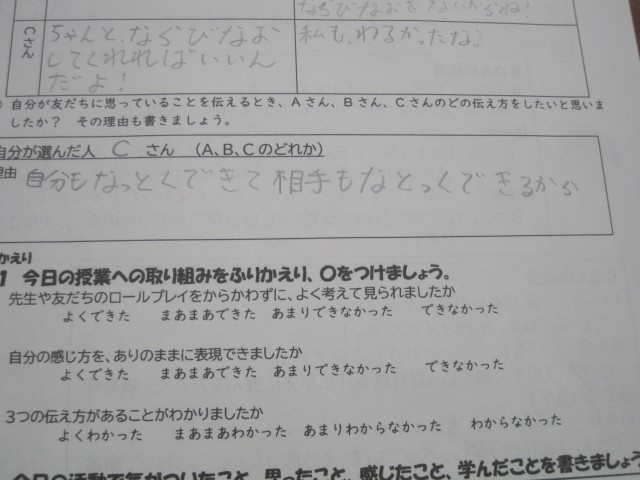 ならびなおさないからね!
Cさん
ちゃんと、ならびなお
してくれればいいん
だよ!
私も、わるかったな。
自分が友だちに思っていることを伝えるとき、Aさん、Bさん、Cさんのどの伝え方をしたいと思いま
したか? その理由も書きましょう。
自分が選んだ人 C さん (A、B、Cのどれか)
理由 自分もなっとくできて相手もなとっくできるから
かえり
1 今日の授業への取り組みをふりかえり、〇をつけましょう。
先生や友だちのロールプレイをからかわずに、よく考えて見られましたか
よくできた まあまあできた あまりできなかった できなかった
自分の感じ方を、ありのままに表現できましたか
よくできた まあまあできた あまりできなかった できなかった
3つの伝え方があることがわかりましたか
よくわかった まあまあわかった あまりわからなかった わからなかった
今日の活動で気がついたこと、思ったこと、感じたこと、学んだことを書きましょう